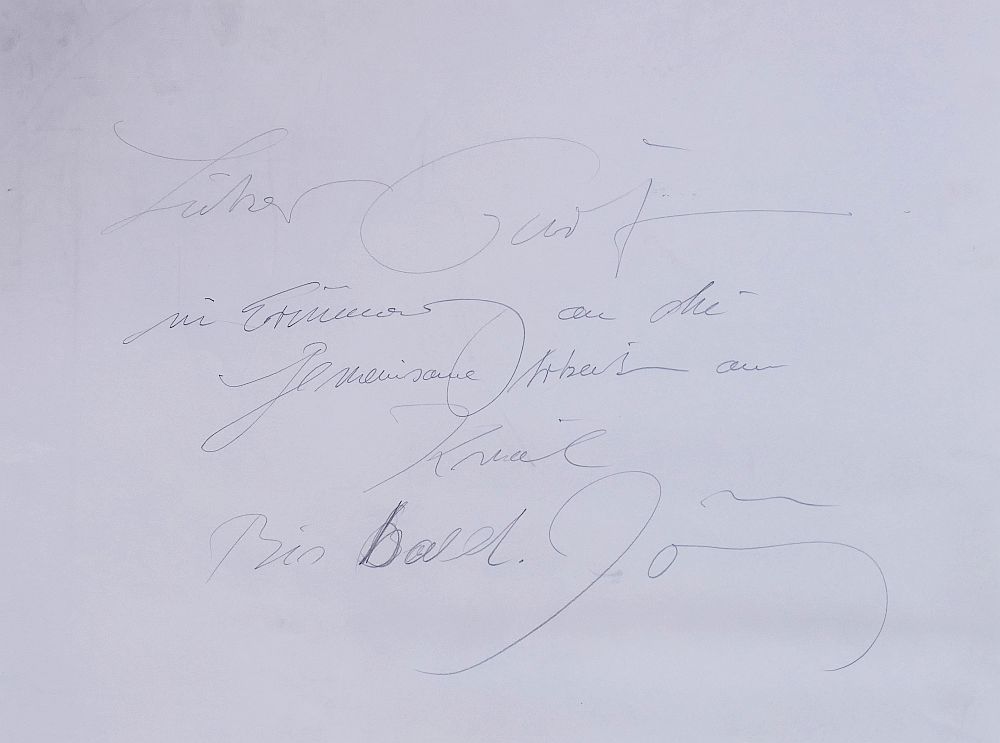 Lieber
in Erinnerung an die
gemeinsame Arbeit am
Bis bald. Jörg